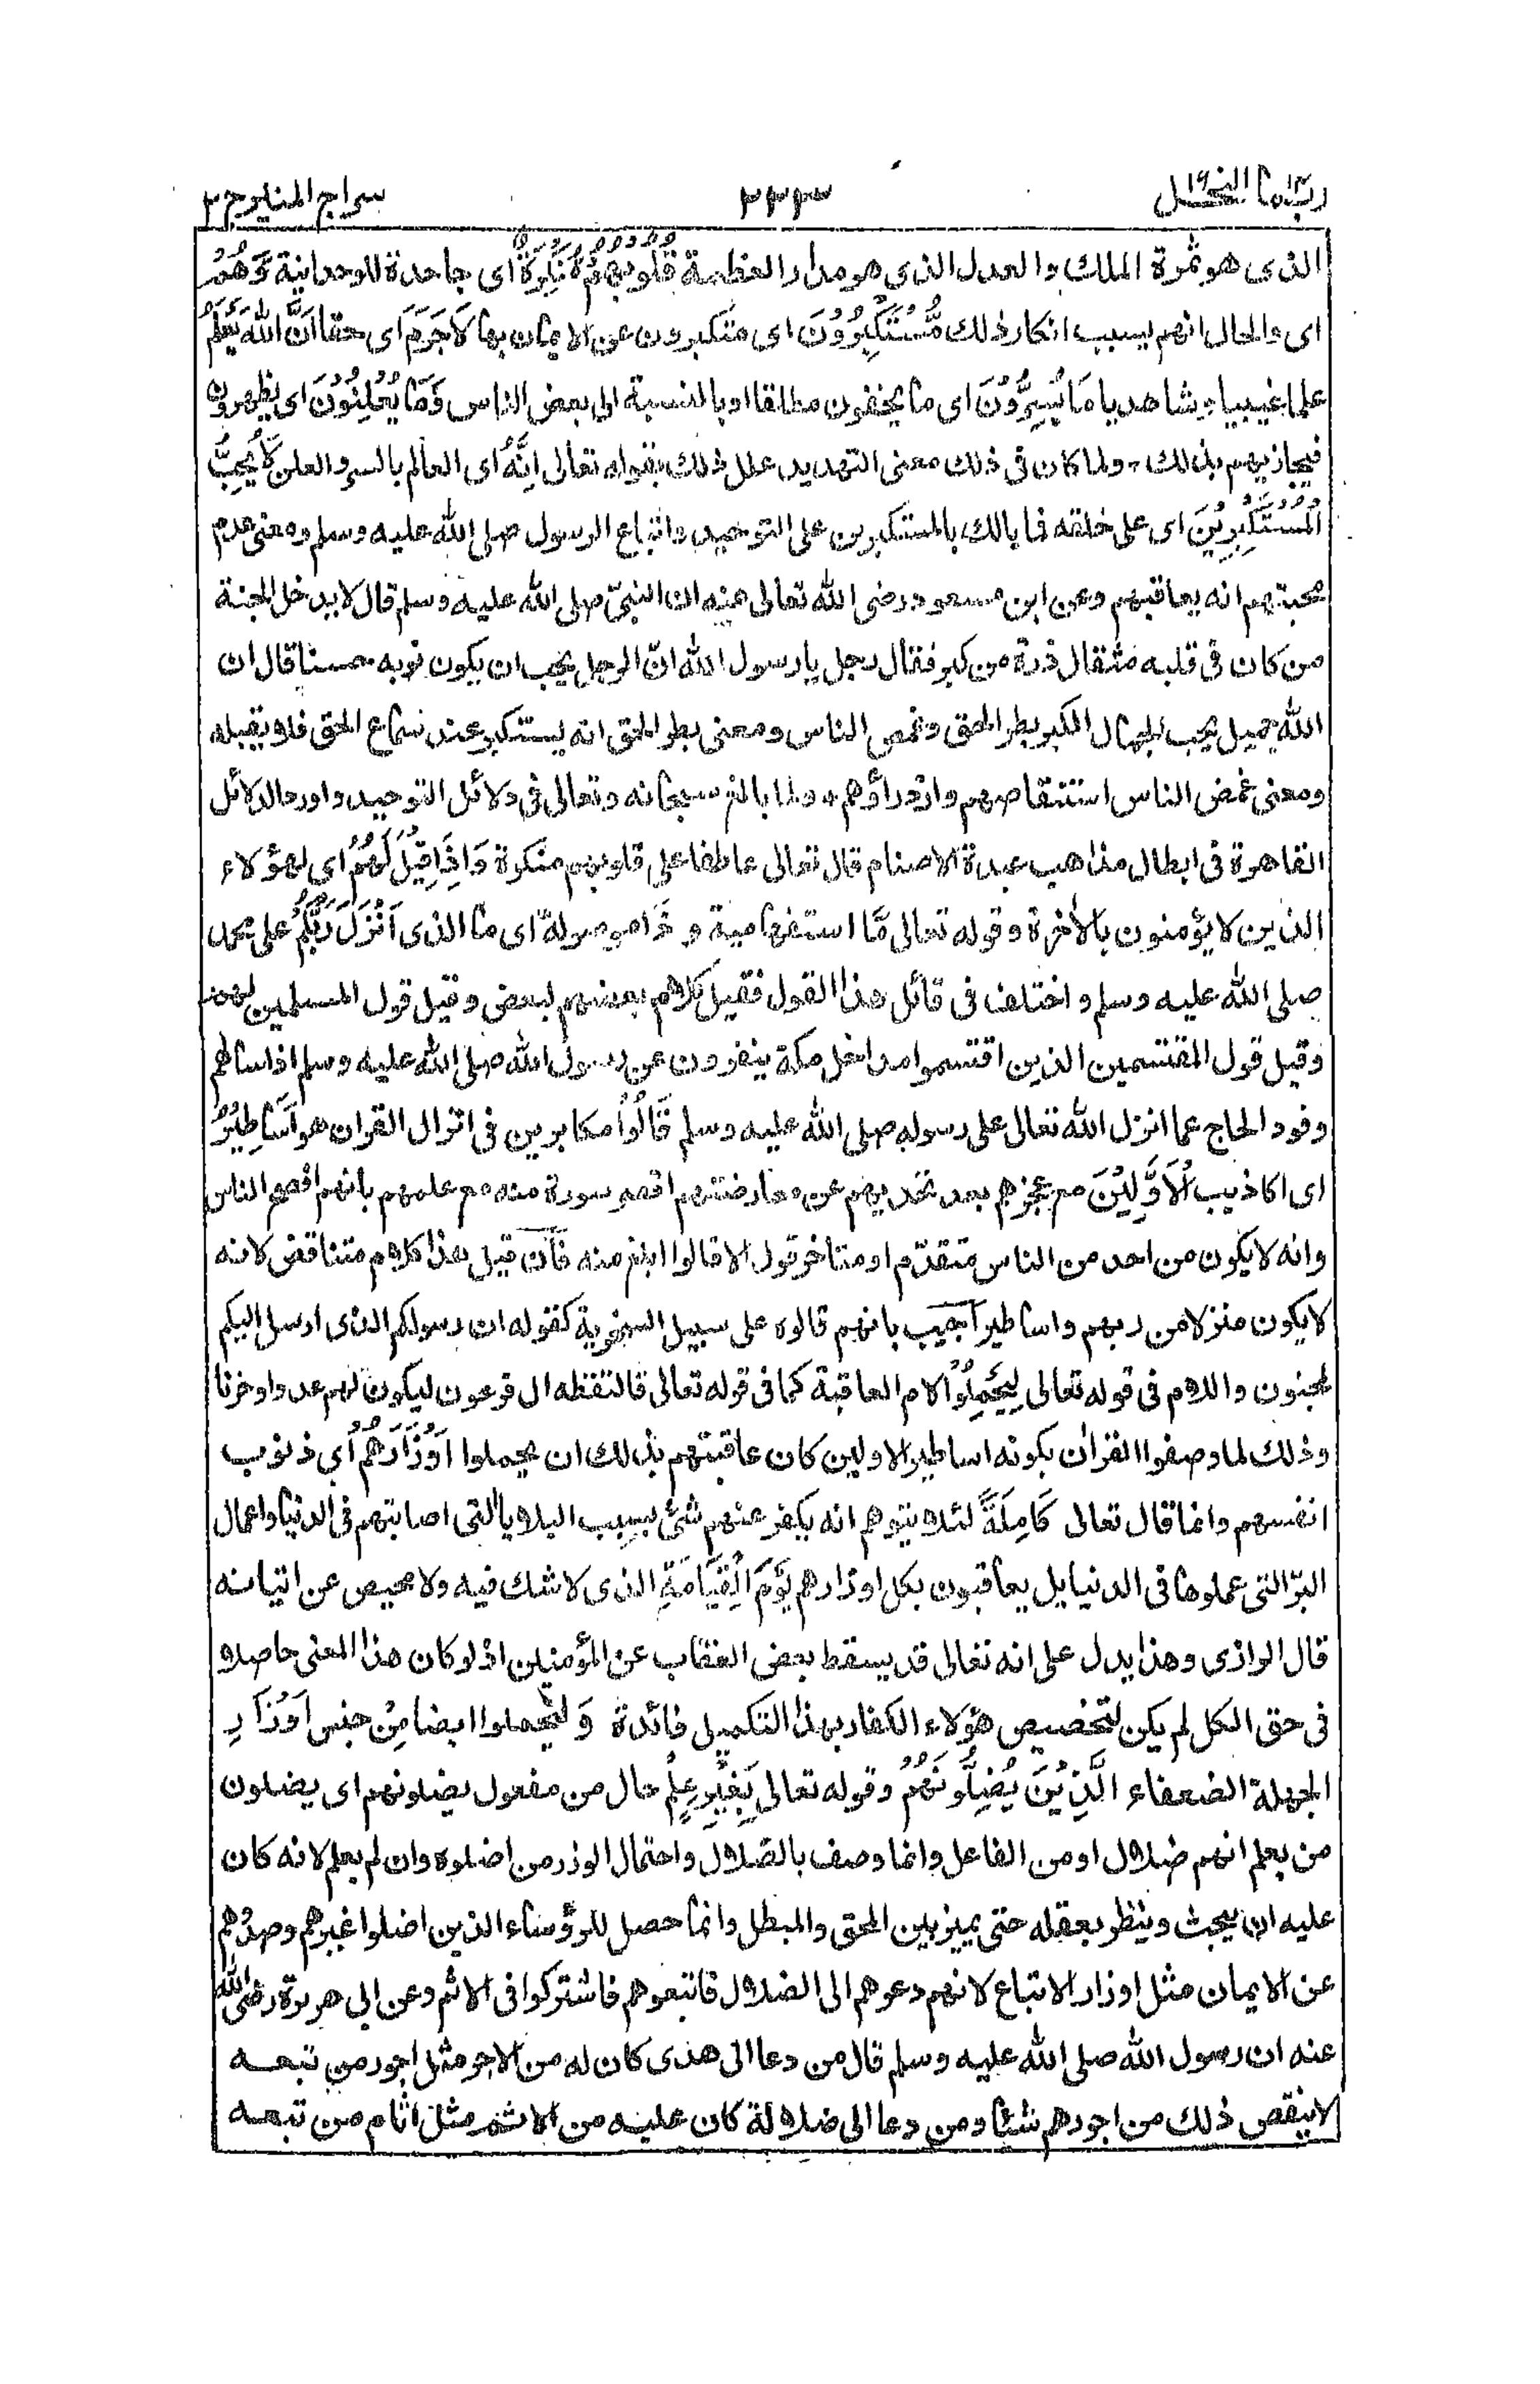 ربما١٤ النحل١٦
٢٣٣
سراج المنير ج ٢
الذى هو ثمرة الملك والعدل الذى هو مدار العظمة قُلُوْبُهُمْ مُّنْكِرَةٌ اى جاحدة للوحدانية وَّهُمْ
اى والحال انهم بسبب انكار ذلك مُّسْتَكْبِرُوْنَ اى متكبرون عن الايمان بها لَاجَرَمَ اى حقا اَنَّ اللّٰهَ يَعْلَمُ
علما غيبيا وشاهديا مَا يُسِرُّوْنَ اى ما يخفون مطلقا او بالنسبة الى بعض الناس وَمَا يُعْلِنُوْنَ اى يظهرون
فيجازيهم بذلك، ولما كان فى ذلك معنى التهديد علل ذلك بقوله تعالى اِنَّهٗ اى العالم بالسر والعلن لَا يُحِبُّ
الْمُسْتَكْبِرِيْنَ اى على خلقه فما بالك بالمستكبرين على التوحيد واتباع الرسول صلى الله عليه وسلم ومعنى عدم
محبتهم انه يعاقبهم وعن ابن مسعود رضى الله تعالى عنه ان النبىّ صلى الله عليه وسلم قال لا يدخل الجنة
من كان فى قلبه مثقال ذرة من كبر فقال رجل يا رسول الله انّ الرجل يحب ان يكون ثوبه حسنا قال ان
الله جميل يحب الجمال الكبر بطر الحق وغمص الناس ومعنى بطر الحق انه يستكبر عند سماع الحق فلا يقبله
ومعنى غمض الناس استنقاصهم وازدراؤهم، ولما بالغ سبحانه وتعالى فى دلائل التوحيد واورد الدلائل
القاهرة فى ابطال مذاهب عبدة الاصنام قال تعالى عاطفا على قلوبهم منكرة وَاِذَا قِيْلَ لَهُمْ اى لهؤلاء
الذين لا يؤمنون بالاٰخرة وقوله تعالى مَّا استفهامية و ذَا موصولة اى ما الذى اَنْزَلَ رَبُّكُمْ على محمد
صلى الله عليه وسلم واختلف فى قائل هذا القول فقيل كلام بعضهم لبعض وقيل قول المسلمين لهم
وقيل قول المقتسمين الذين اقتسموا مداخل مكة ينفرون عن رسول الله صلى الله عليه وسلم اذا سالهم
وفود الحاج عما انزل الله تعالى على رسوله صلى الله عليه وسلم قَالُوْا مكابرين فى انزال القران هو اَسَاطِيْرُ
اى اكاذيب الْاَوَّلِيْنَ مع عجزهم بعد تحديهم عن معارضتهم اقصر سورة منه مع علمهم بانهم افصح الناس
وانه لا يكون من احد من الناس متقدّم او متاخر قول الا قالوا ابلغ منه فان قيل هذا كلام متناقض لانه
لا يكون منزلا من ربهم واساطير اجيب بانهم قالوه على سبيل السخرية كقوله ان رسولكم الذى ارسل اليكم
لمجنون واللام فى قوله تعالى لِيَحْمِلُوْا لام العاقبة كما فى قوله تعالى فالتقطه ال فرعون ليكون لهم عدوا وحزنا
وذلك لما وصفوا القراٰن بكونه اساطير الاولين كان عاقبتهم بذلك ان يحملوا اَوْزَارَهُمْ اى ذنوب
انفسهم وانما قال تعالى كَامِلَةً لئلا يتوهم انه يكفر عنهم شئ بسبب البلايا التى اصابتهم فى الدنيا واعمال
البرّ التى عملوها فى الدنيا بل يعاقبون بكل اوزارهم يَوْمَ الْقِيَامَةِ الذى لا شك فيه ولا محيص عن اتيانه
قال الرازى وهذا يدل على انه تعالى قد يسقط بعض العقاب عن المؤمنين اذ لو كان هذا المعنى حاصلا
فى حق الكل لم يكن لتخصيص هؤلاء الكفار بهذا التكميل فائدة وَ ليحملوا ايضا مِنْ جنس اَوْزَارِ
الجهلة الضعفاء الَّذِيْنَ يُضِلُّوْنَهُمْ وقوله تعالى بِغَيْرِ عِلْمٍ حال من مفعول يضلونهم اى يضلون
من يعلم انهم ضلال او من الفاعل وانما وصف بالضلال واحتمال الوزر من اضلوه وان لم يعلم لانه كان
عليه ان يبحث وينظر بعقله حتى يميز بين المحق والمبطل وانما حصل للرؤساء الذين اضلوا غيرهم وصدّهم
عن الايمان مثل اوزار الاتباع لانهم دعوهم الى الضلال فاتبعوهم فاشتركوا فى الاثم وعن ابى هريرة رضى الله
عنه ان رسول الله صلى الله عليه وسلم قال من دعا الى هدى كان له من الاجر مثل اجور من تبعه
لا ينقص ذلك من اجورهم شيئا ومن دعا الى ضلالة كان عليه من الاثم مثل اثام من تبعه